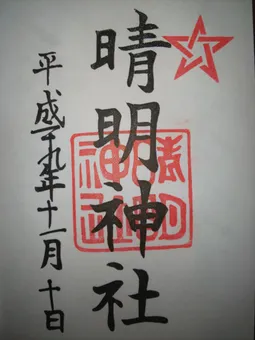 晴明神社
平成十九年十一月十日
晴明
神社